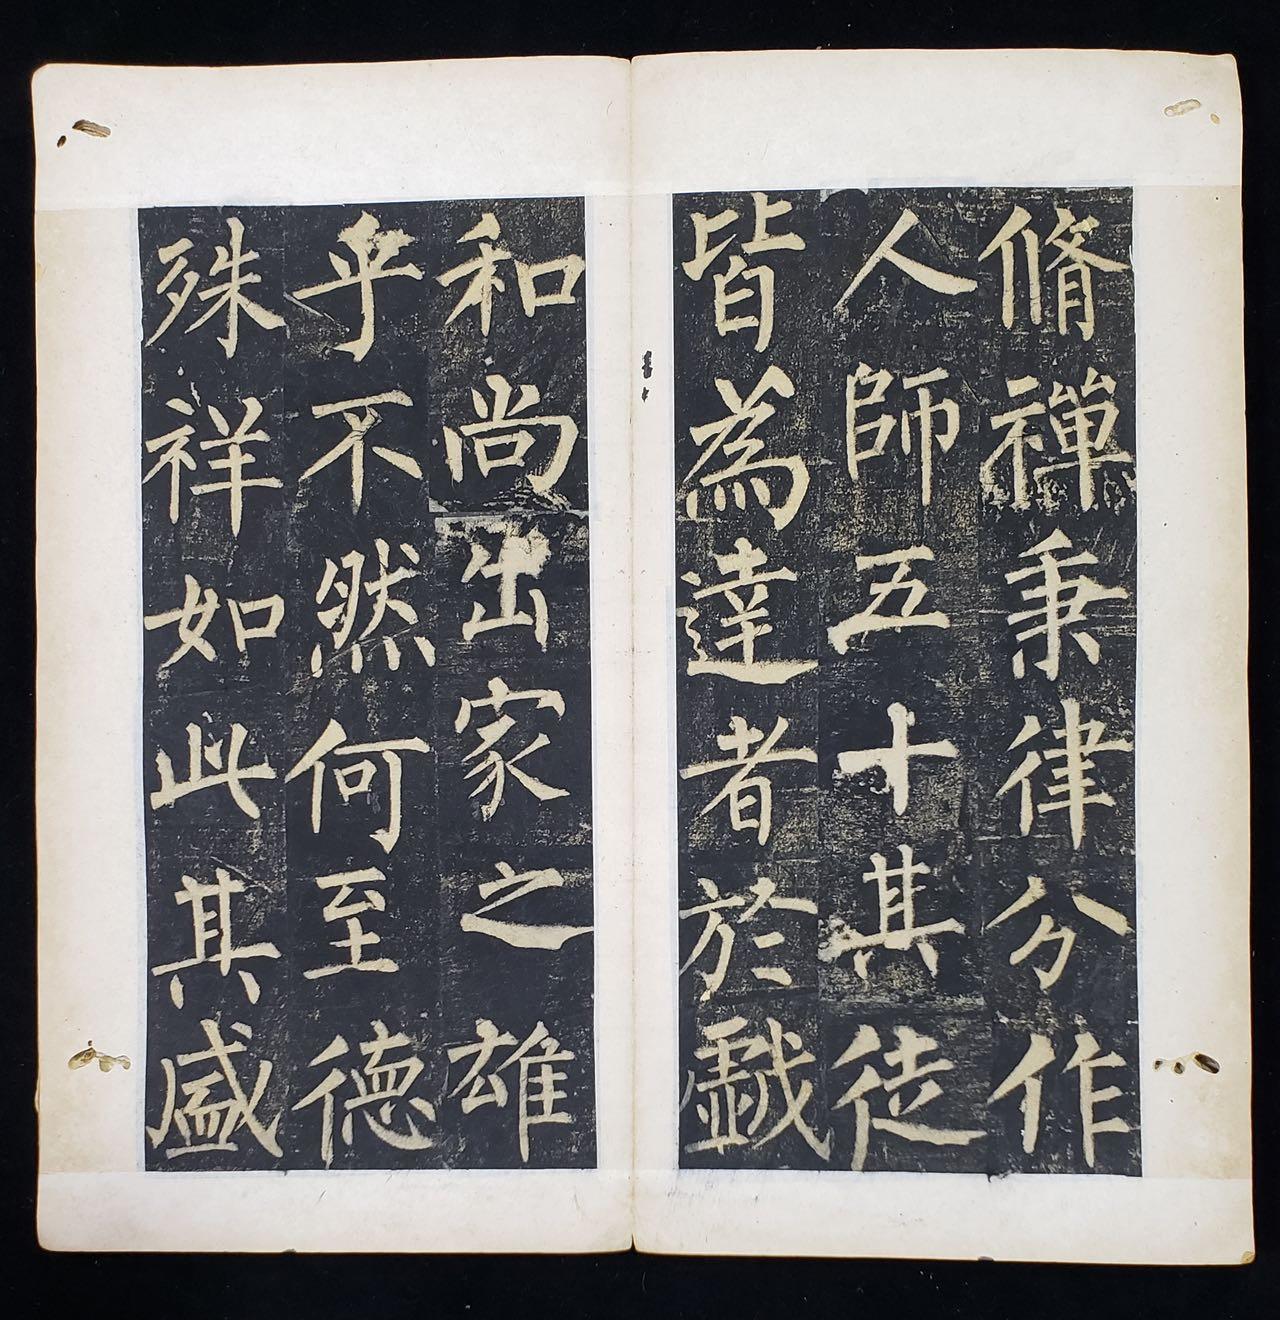 脩禪秉律分作
人師五十其徒
皆為達者於戲
和尚出家之雄
乎不然何至德
殊祥如此其盛